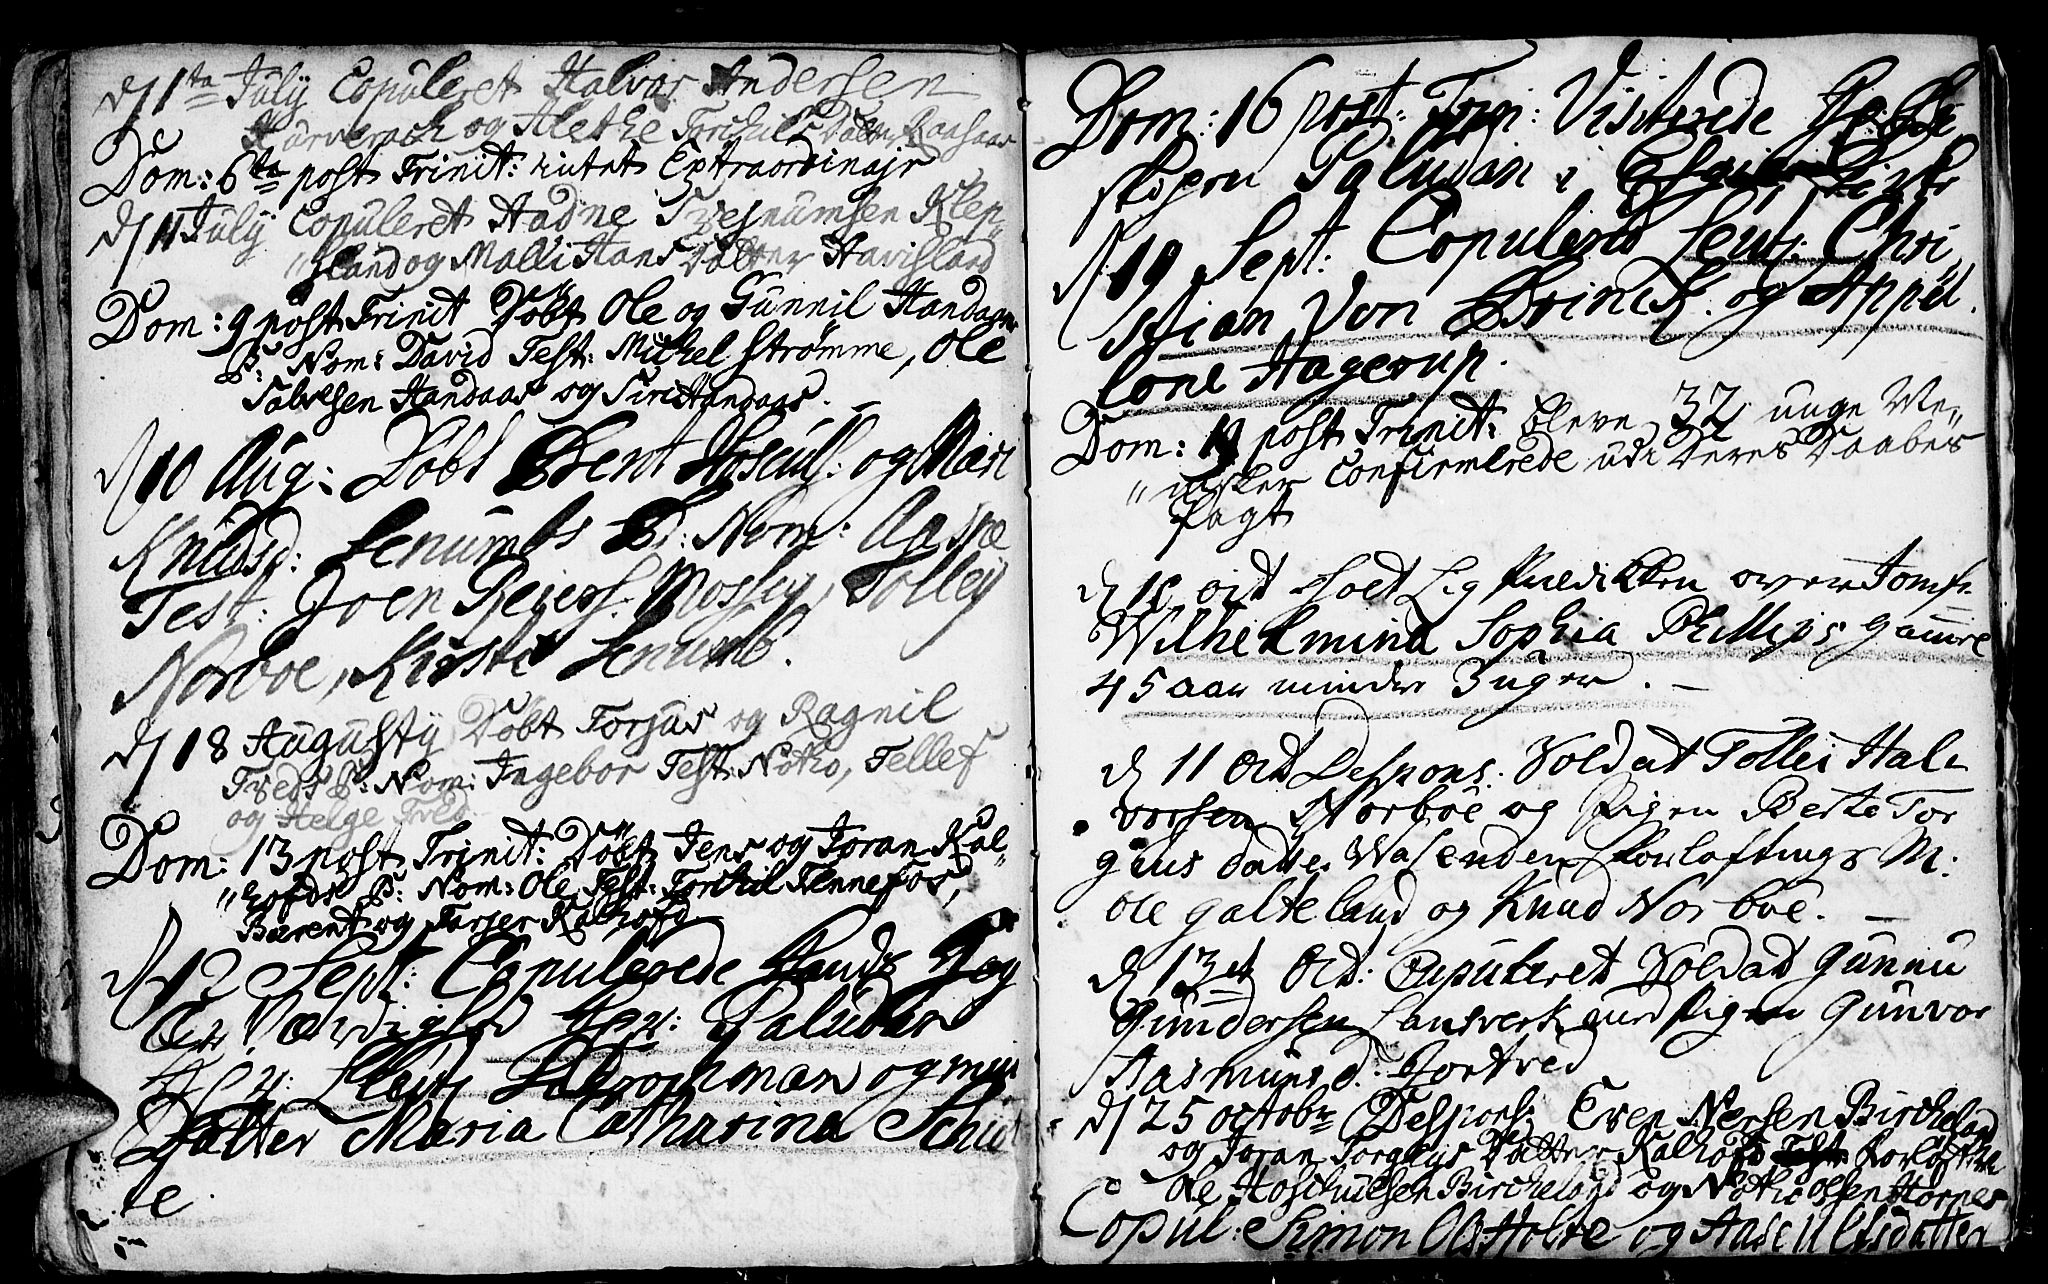 d 1ta July Copuleret Halvor Andersen
og Alethe Torchils Datter
Dom: 6ta post Trinit: intet Extraordinajr
d 11 July Copuleret Aadne Tvesnumsen Klep
land og Malli Hans Datter Havisland
Dom: 9 post Trinit Döbt Ole og Gunnil Handaas
P: Nom: David Test: Michel Strømme, Ole
Salvesen Handaas og Siri Handaas.
d 10 Aug: Döbt Bent Hosculs: og Mari
Knudsd: Senumbs B: Nom: Aasne
Test: Joen Reiers: Mosseg, Tolleg
Norboe, Kirsti Senumb.
d 18 Augusty Döbt Torjus og Ragnil
Treds P: Nom: Ingebor Test: Notto, Tellef
og Helge Tred
Dom: 13 post Trinit: Döbt Jens og Joran Kal
hofds P: Nom: Ole Test: Torkil Fennefos,
Barent og Tarjer Kalhofd
d 12 Sept: Copulerede
Hr: Paludan
Hr: og min
Datter Maria Catharina Schut
te.
Dom: 16 post: Trin: Visiterede Hr: Bi
skopen Paludan i Kirke
d 19 Sept: Copulered Leut: Chri
stian Von Brinck. og Appol
lone Hagerup.
Dom: 19 post Trinit: bleve 32 unge Me
nisker Confirmerede udi Deres Daabes
Pagt
d 10 oct holt Lig Predikken over Jomfr
Wilhelmina Sophia Phillips gamle
45 aar mindre 3 uger.
d 11 Oct Despons: Soldat Tollei Hal
vorsen Norboe og Pigen Berte Tor
giusdatter Wasenden Forloftings M:
Ole galteland og Knud Norboe.
d 13de Oct: Copuleret Soldat Gunnu
Gundersen Lansverk med Pigen Gunvor
Aasmunsd: Hortved
d 25 octobr Despons: Even Nersen Bircheland
og Joran Torgiys Datter Kalhofd
Ole Hoscuelsen Bircheland og Notto Olsen Hornes
Copul: Simon Ols Holte og Aase Ulfsdatter